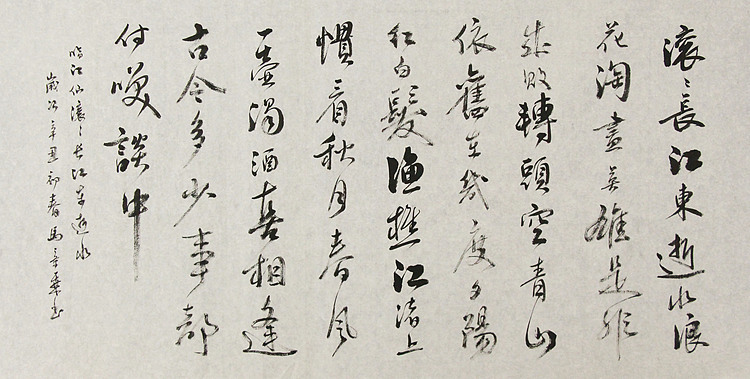 滚〻長江東逝水浪
花淘盡英雄是非
成敗轉頭空青山
依舊在幾度夕陽
紅白髮漁樵江渚上
慣看秋月春風
一壺濁酒喜相逢
古今多少事都
付笑談中
臨江仙滚〻長江東逝水
歲次辛丑初春馬